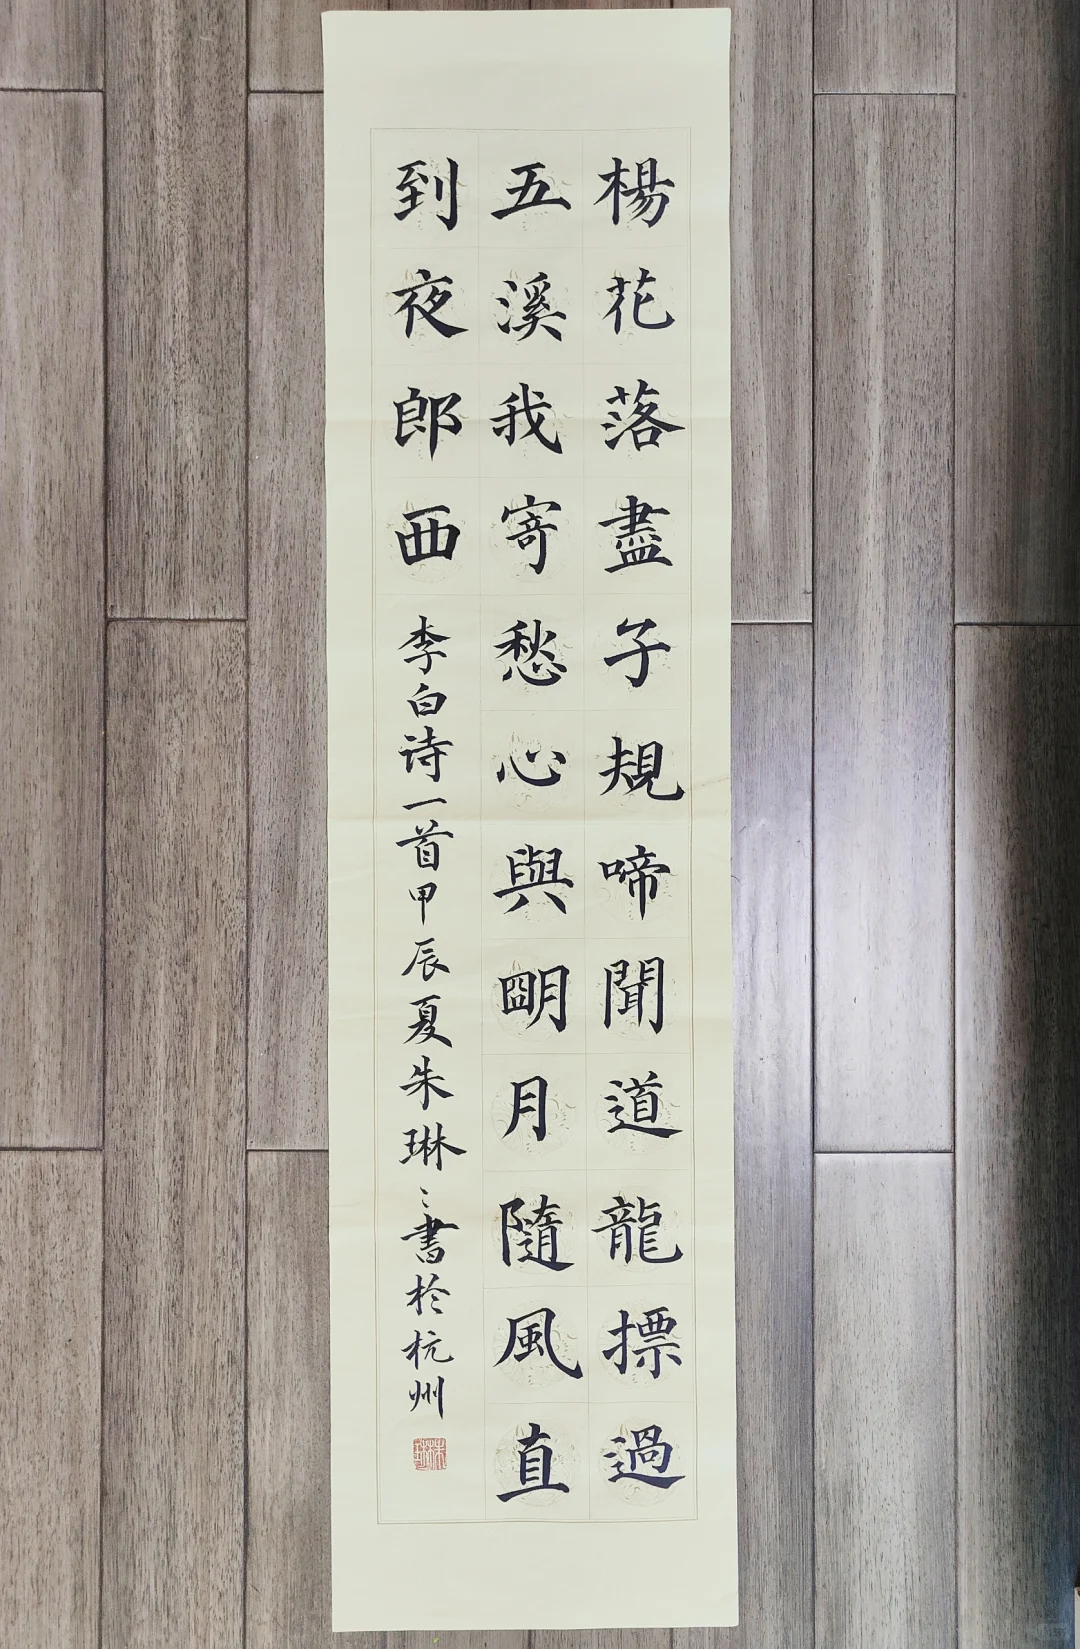 楊花落盡子規啼聞道龍摽過
五溪我寄愁心與朙月隨風直
到夜郎西李白诗一首甲辰夏朱琳〻書於杭州